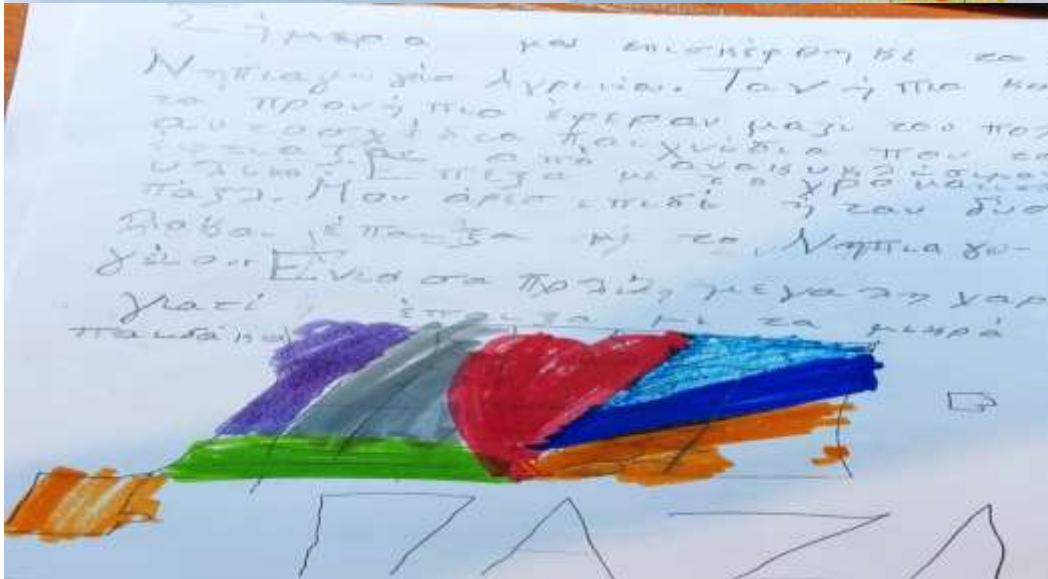 Σήμερα μας επισκέφθηκε το
Νηπιαγωγείο Αγρινίου. Τα νήπια κα
τα προνήπια έφεραν μαζί του πολ
αυτοσχέδια παιχνίδια που τα
από
υλικά. Έπεξα με το χρωματισ
παζλ. Μου άρεσ επιδί ήταν δυσ
έπαιξα μέ το Νηπιαγω-
γείο. Ενιοσα πολλύ μεγαλη χαρ
γιατί έπαιξα με τα μικρά
παιδάκια
ΠΑΖΛ